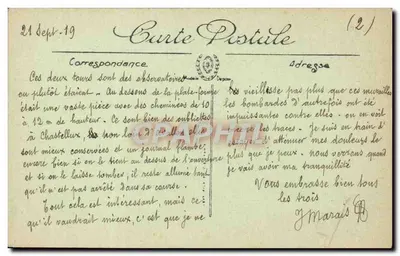 21 Sept - 19
Carte Postale
(2)
Correspondance
Adresse
Ces deux tours sont des observatoires
ou plutôt étaient - Au dessus de la plate-forme
était une vaste pièce avec des cheminées de 10
à 12 m de hauteur. Ce sont bien des oubliettes
à Chastellux,
sont mieux conservées et un journal flambe
encore bien si on le tient au dessus de l'ouverture
et si on le laisse tomber, il reste allumé tant
qu'il n'est pas arrêté dans sa course.
Tout cela est intéressant, mais ce
qu'il vaudrait mieux, c'est que je ne
vieillesse pas plus que ces murailles
les bombardes d'autrefois ont été
impuissantes contre elles - on en voit
les traces. Je suis en train d'
atténuer mes douleurs le
plus que je peux. nous verrons quand
je vais avoir ma tranquillité
Vous embrasse bien tous
les trois
J Marais